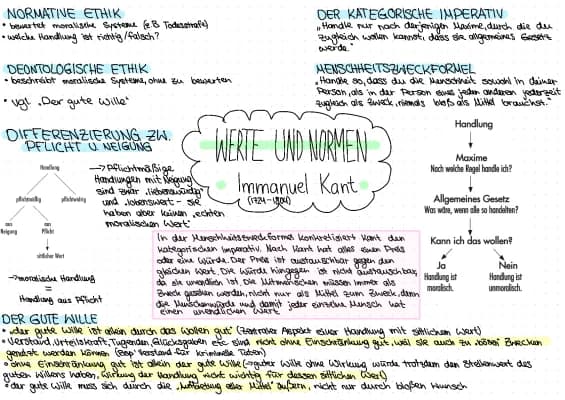 NORMATIVE ETHIK
• bewertet moralische Systeme (z.B Todesstrafe)
• welche Handlung ist richtig/falsch?
DEONTOLOGISCHE ETHIK
• beschreibt moralische Systeme, ohne zu bewerten
• vgl. „Der gute Wille"
DIFFERENZIERUNG ZW.
PFLICHT U. NEIGUNG
Handlung
pflichtmäßig
pflichtwidrig
aus Neigung
aus Pflicht
sittlicher Wert
→ Pflichtmäßige
Handlungen mit Neigung
sind zwar „liebenswürdig"
und „lobenswert" – sie
haben aber keinen „echten
moralischen Wert"
→ moralische Handlung
=
Handlung aus Pflicht
WERTE UND NORMEN
Immanuel Kant
(1724-1804)
DER KATEGORISCHE IMPERATIV
„Handle nur nach derjenigen Maxime, durch die du
zugleich wollen kannst, dass sie allgemeines Gesetz
werde."
MENSCHHEITSZWECKFORMEL
„Handle so, dass du die Menschheit sowohl in deiner
Person, als in der Person eines jeden anderen jederzeit
zugleich als Zweck, niemals bloß als Mittel brauchst."
Handlung
Maxime
Nach welcher Regel handle ich?
Allgemeines Gesetz
Was wäre, wenn alle so handelten?
Kann ich das wollen?
Ja
Handlung ist
moralisch.
Nein
Handlung ist
unmoralisch.
In der Menschheitszweckformel konkretisiert Kant den
kategorischen Imperativ. Nach Kant hat alles einen Preis
oder eine Würde. Der Preis ist austauschbar gegen den
gleichen Wert. Die Würde hingegen ist nicht austauschbar,
da sie unendlich ist. Die Mitmenschen müssen immer als
Zweck gesehen werden, nicht nur als Mittel zum Zweck, denn
die Menschenwürde und damit jeder einzelne Mensch hat
einen unendlichen Wert.
DER GUTE WILLE
• „der gute Wille ist allein durch das Wollen gut" (zentraler Aspekt einer Handlung mit sittlichem Wert)
• Verstand, Urteilskraft, Tugenden, Glücksgaben etc. sind nicht ohne Einschränkung gut, weil sie auch zu bösen Zwecken
genutzt werden können (Bsp. Verstand für kriminelle Taten)
• ohne Einschränkung gut ist allein der gute Wille (→ guter Wille ohne Wirkung würde trotzdem den Stellenwert des
guten Willens haben, Wirkung der Handlung nicht wichtig für dessen sittlichen Wert)
• der gute Wille muss sich durch die „Aufbietung aller Mittel" äußern, nicht nur durch bloßen Wunsch